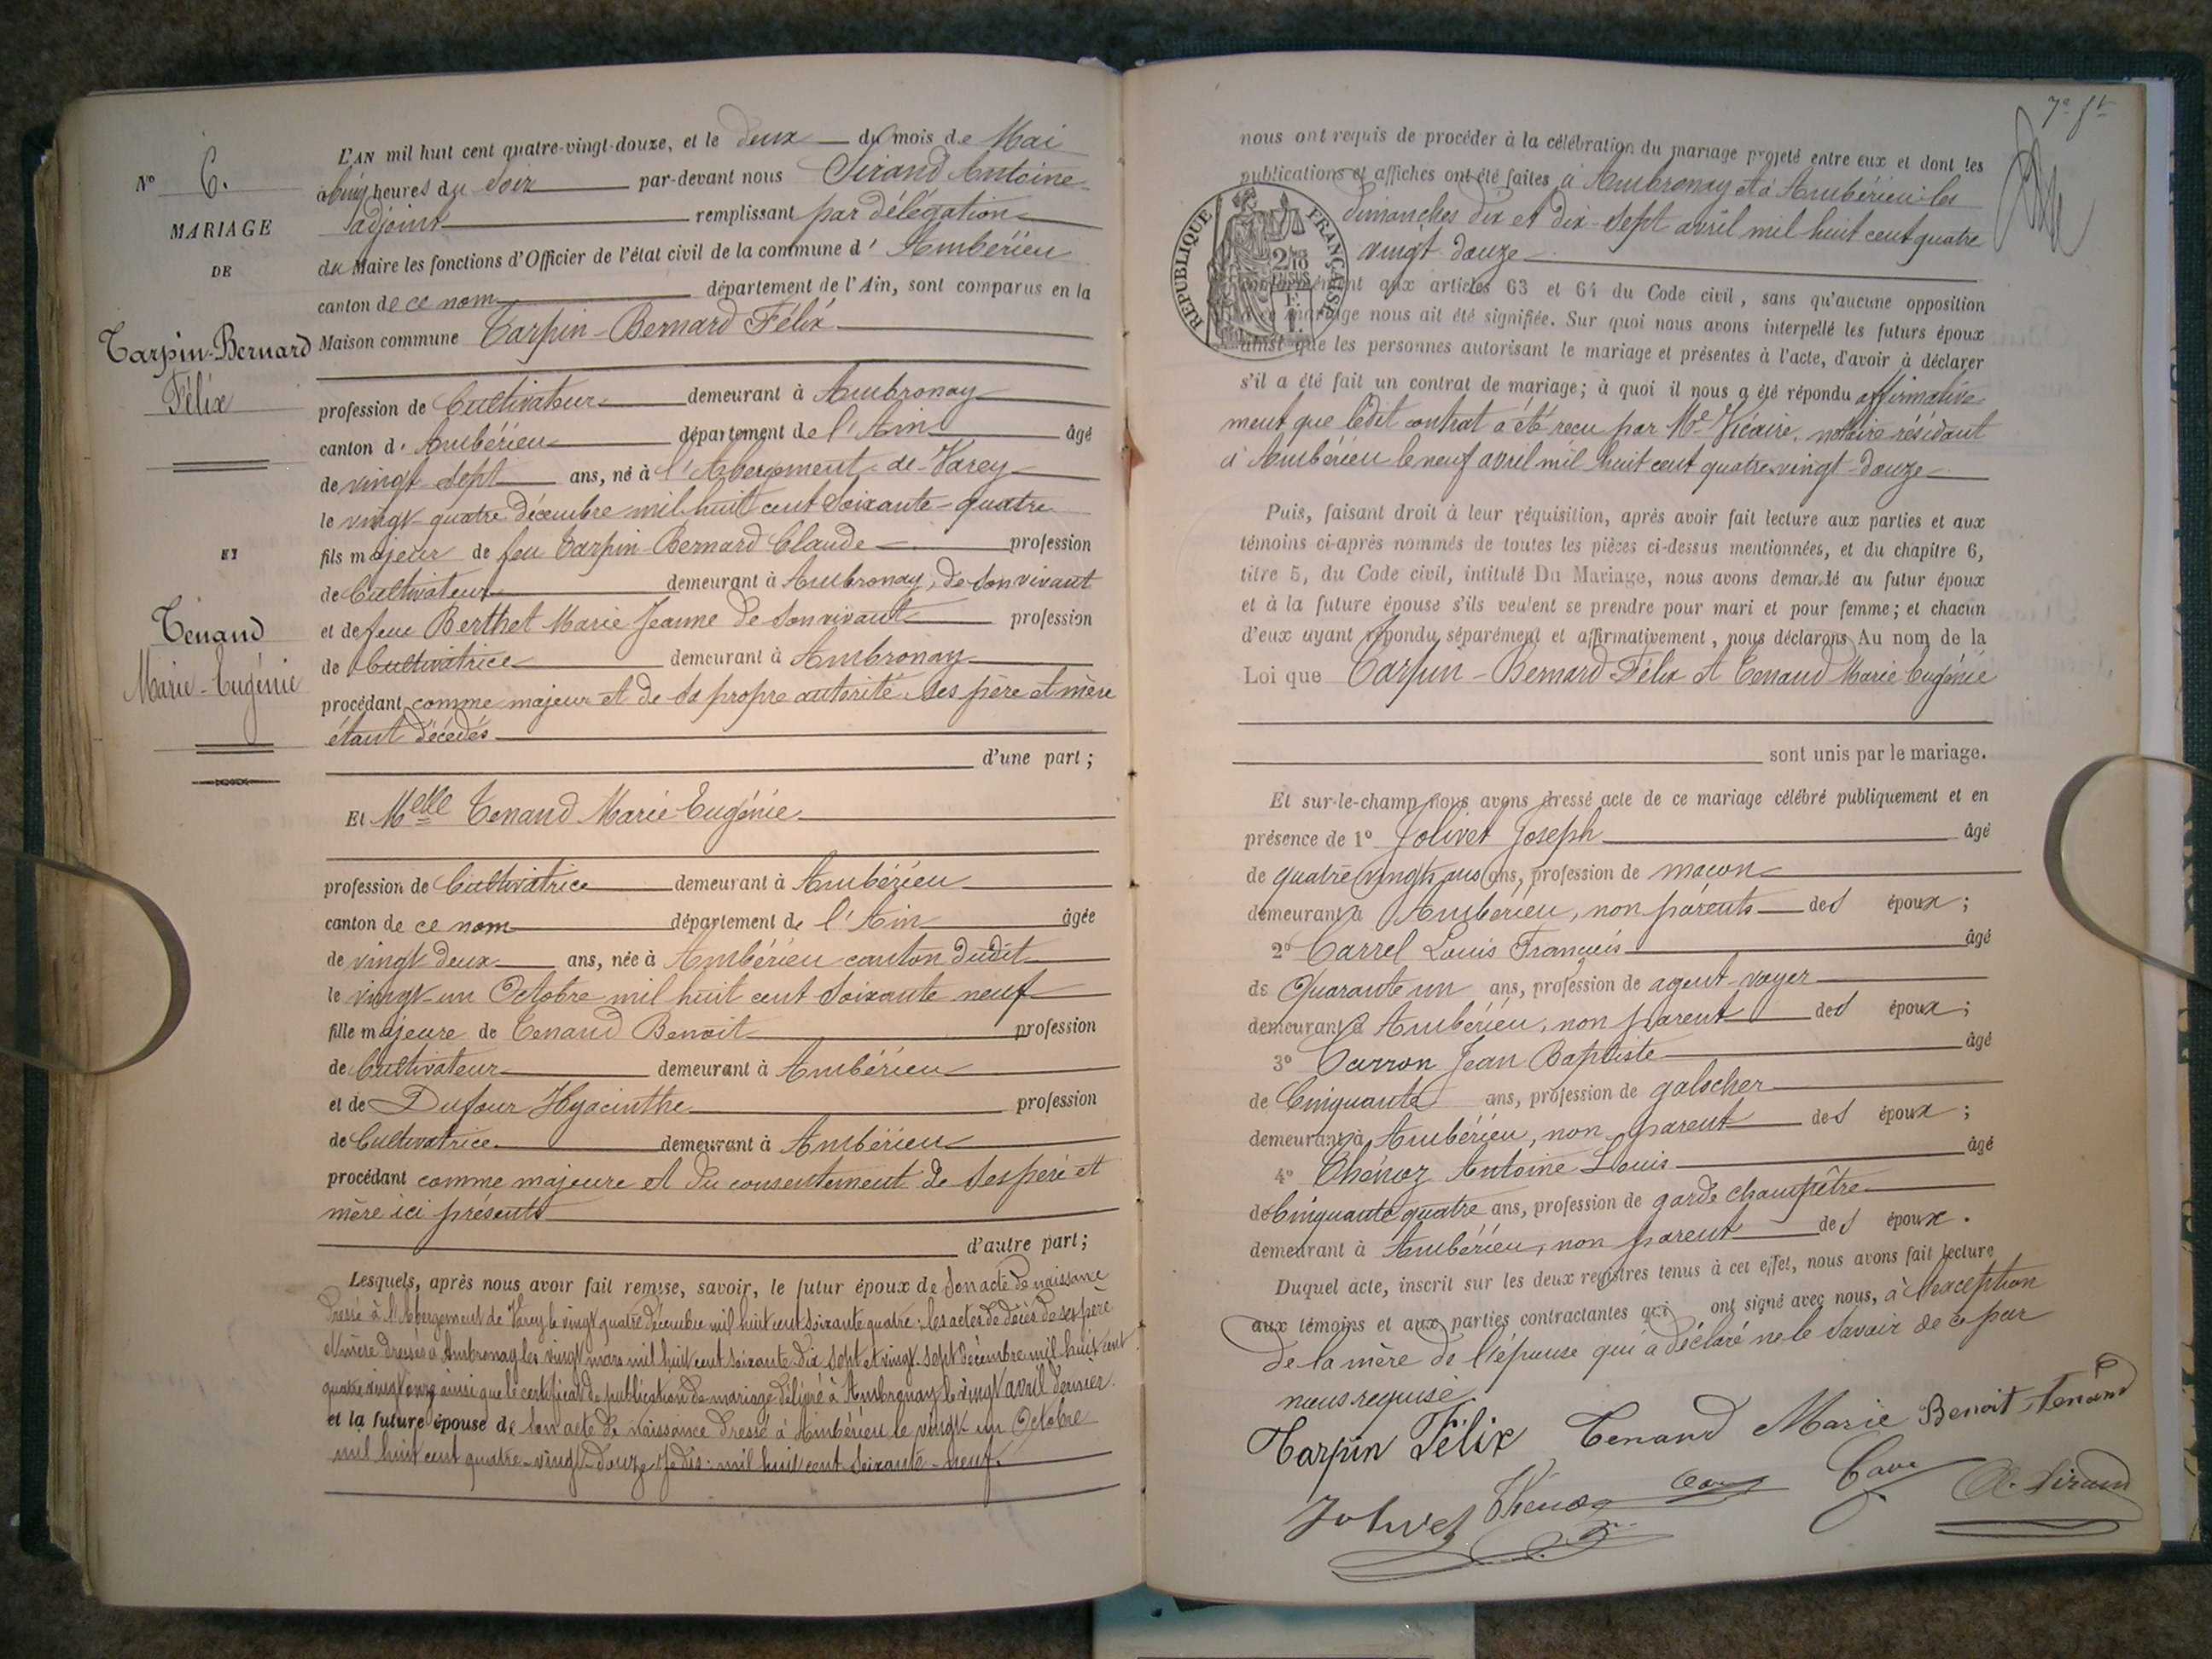 N° 6.
MARIAGE
DE
Tarpin-Bernard
Félix
ET
Tenand
Marie-Eugénie
L'AN mil huit cent quatre-vingt-douze, et le deux du mois de Mai
à cinq heures du soir par-devant nous Sirand Antoine
adjoint remplissant par délégation
du Maire les fonctions d'Officier de l'état civil de la commune d' Ambérieu
canton de ce nom département de l'Ain, sont comparus en la
Maison commune Tarpin-Bernard Félix
profession de Cultivateur demeurant à Ambronay
canton d' Ambérieu département de l'Ain âgé
de vingt-sept ans, né à l'Abergement-de-Varey
le vingt-quatre décembre mil huit cent soixante-quatre
fils majeur de feu Tarpin-Bernard Claude profession
de Cultivateur demeurant à Ambronay, de son vivant
et de feue Berthet Marie Jeanne de son vivant profession
de Cultivatrice demeurant à Ambronay
procédant comme majeur et de sa propre autorité ses père et mère
étant décédés
d'une part ;
Et Melle Tenand Marie Eugénie
profession de Cultivatrice demeurant à Ambérieu
canton de ce nom département de l'Ain âgée
de vingt deux ans, née à Ambérieu canton dudit
le vingt-un Octobre mil huit cent soixante neuf
fille majeure de Tenand Benoit profession
de Cultivateur demeurant à Ambérieu
et de Dufour Hyacinthe profession
de Cultivatrice demeurant à Ambérieu
procédant comme majeure et du consentement de ses père et
mère ici présents
d'autre part ;
Lesquels, après nous avoir fait remise, savoir, le futur époux de son acte de naissance
dressé à l'Abergement de Varey le vingt quatre décembre mil huit cent soixante quatre : les actes de décès de ses père
et mère dressés à Ambronay les vingt mars mil huit cent soixante dix sept et vingt-sept décembre mil huit cent
quatre vingt onze ainsi que le certificat de publication de mariage délivré à Ambronay le vingt avril dernier
et la future épouse de son acte de naissance dressé à Ambérieu le vingt un Octobre
mil huit cent quatre-vingt-douze je dis : mil huit cent soixante-neuf.
7e ft
nous ont requis de procéder à la célébration du mariage projeté entre eux et dont les
publications et affiches ont été faites à Ambronay et à Ambérieu les
dimanches dix et dix-sept avril mil huit cent quatre
vingt-douze
RÉPUBLIQUE FRANÇAISE
2/10 EN SUS
1 F.
conformément aux articles 63 et 64 du Code civil, sans qu'aucune opposition
à ce mariage nous ait été signifiée. Sur quoi nous avons interpellé les futurs époux
ainsi que les personnes autorisant le mariage et présentes à l'acte, d'avoir à déclarer
s'il a été fait un contrat de mariage ; à quoi il nous a été répondu affirmative
ment que ledit contrat a été reçu par Me Vicaire, notaire résidant
à Ambérieu le neuf avril mil huit cent quatre-vingt-douze
Puis, faisant droit à leur réquisition, après avoir fait lecture aux parties et aux
témoins ci-après nommés de toutes les pièces ci-dessus mentionnées, et du chapitre 6,
titre 5, du Code civil, intitulé Du Mariage, nous avons demandé au futur époux
et à la future épouse s'ils veulent se prendre pour mari et pour femme ; et chacun
d'eux ayant répondu séparément et affirmativement, nous déclarons Au nom de la
Loi que Tarpin-Bernard Félix et Tenand Marie Eugénie
sont unis par le mariage.
Et sur-le-champ nous avons dressé acte de ce mariage célébré publiquement et en
présence de 1° Jolivet Joseph âgé
de quatre vingts ans ans, profession de maçon
demeurant à Ambérieu, non parents des époux ;
2° Carrel Louis François âgé
de Quarante un ans, profession de agent-voyer
demeurant à Ambérieu, non parent des époux ;
3° Carron Jean Baptiste âgé
de Cinquante ans, profession de galocher
demeurant à Ambérieu, non parent des époux ;
4° Thénoz Antoine Louis âgé
de Cinquante quatre ans, profession de garde champêtre
demeurant à Ambérieu, non parent des époux.
Duquel acte, inscrit sur les deux registres tenus à cet effet, nous avons fait lecture
aux témoins et aux parties contractantes qui ont signé avec nous, à l'exception
de la mère de l'épouse qui a déclaré ne le savoir de ce par
nous requise.
Tarpin Félix Tenand Marie Benoit Tenand
Jolivet Thenoz A. Sirand